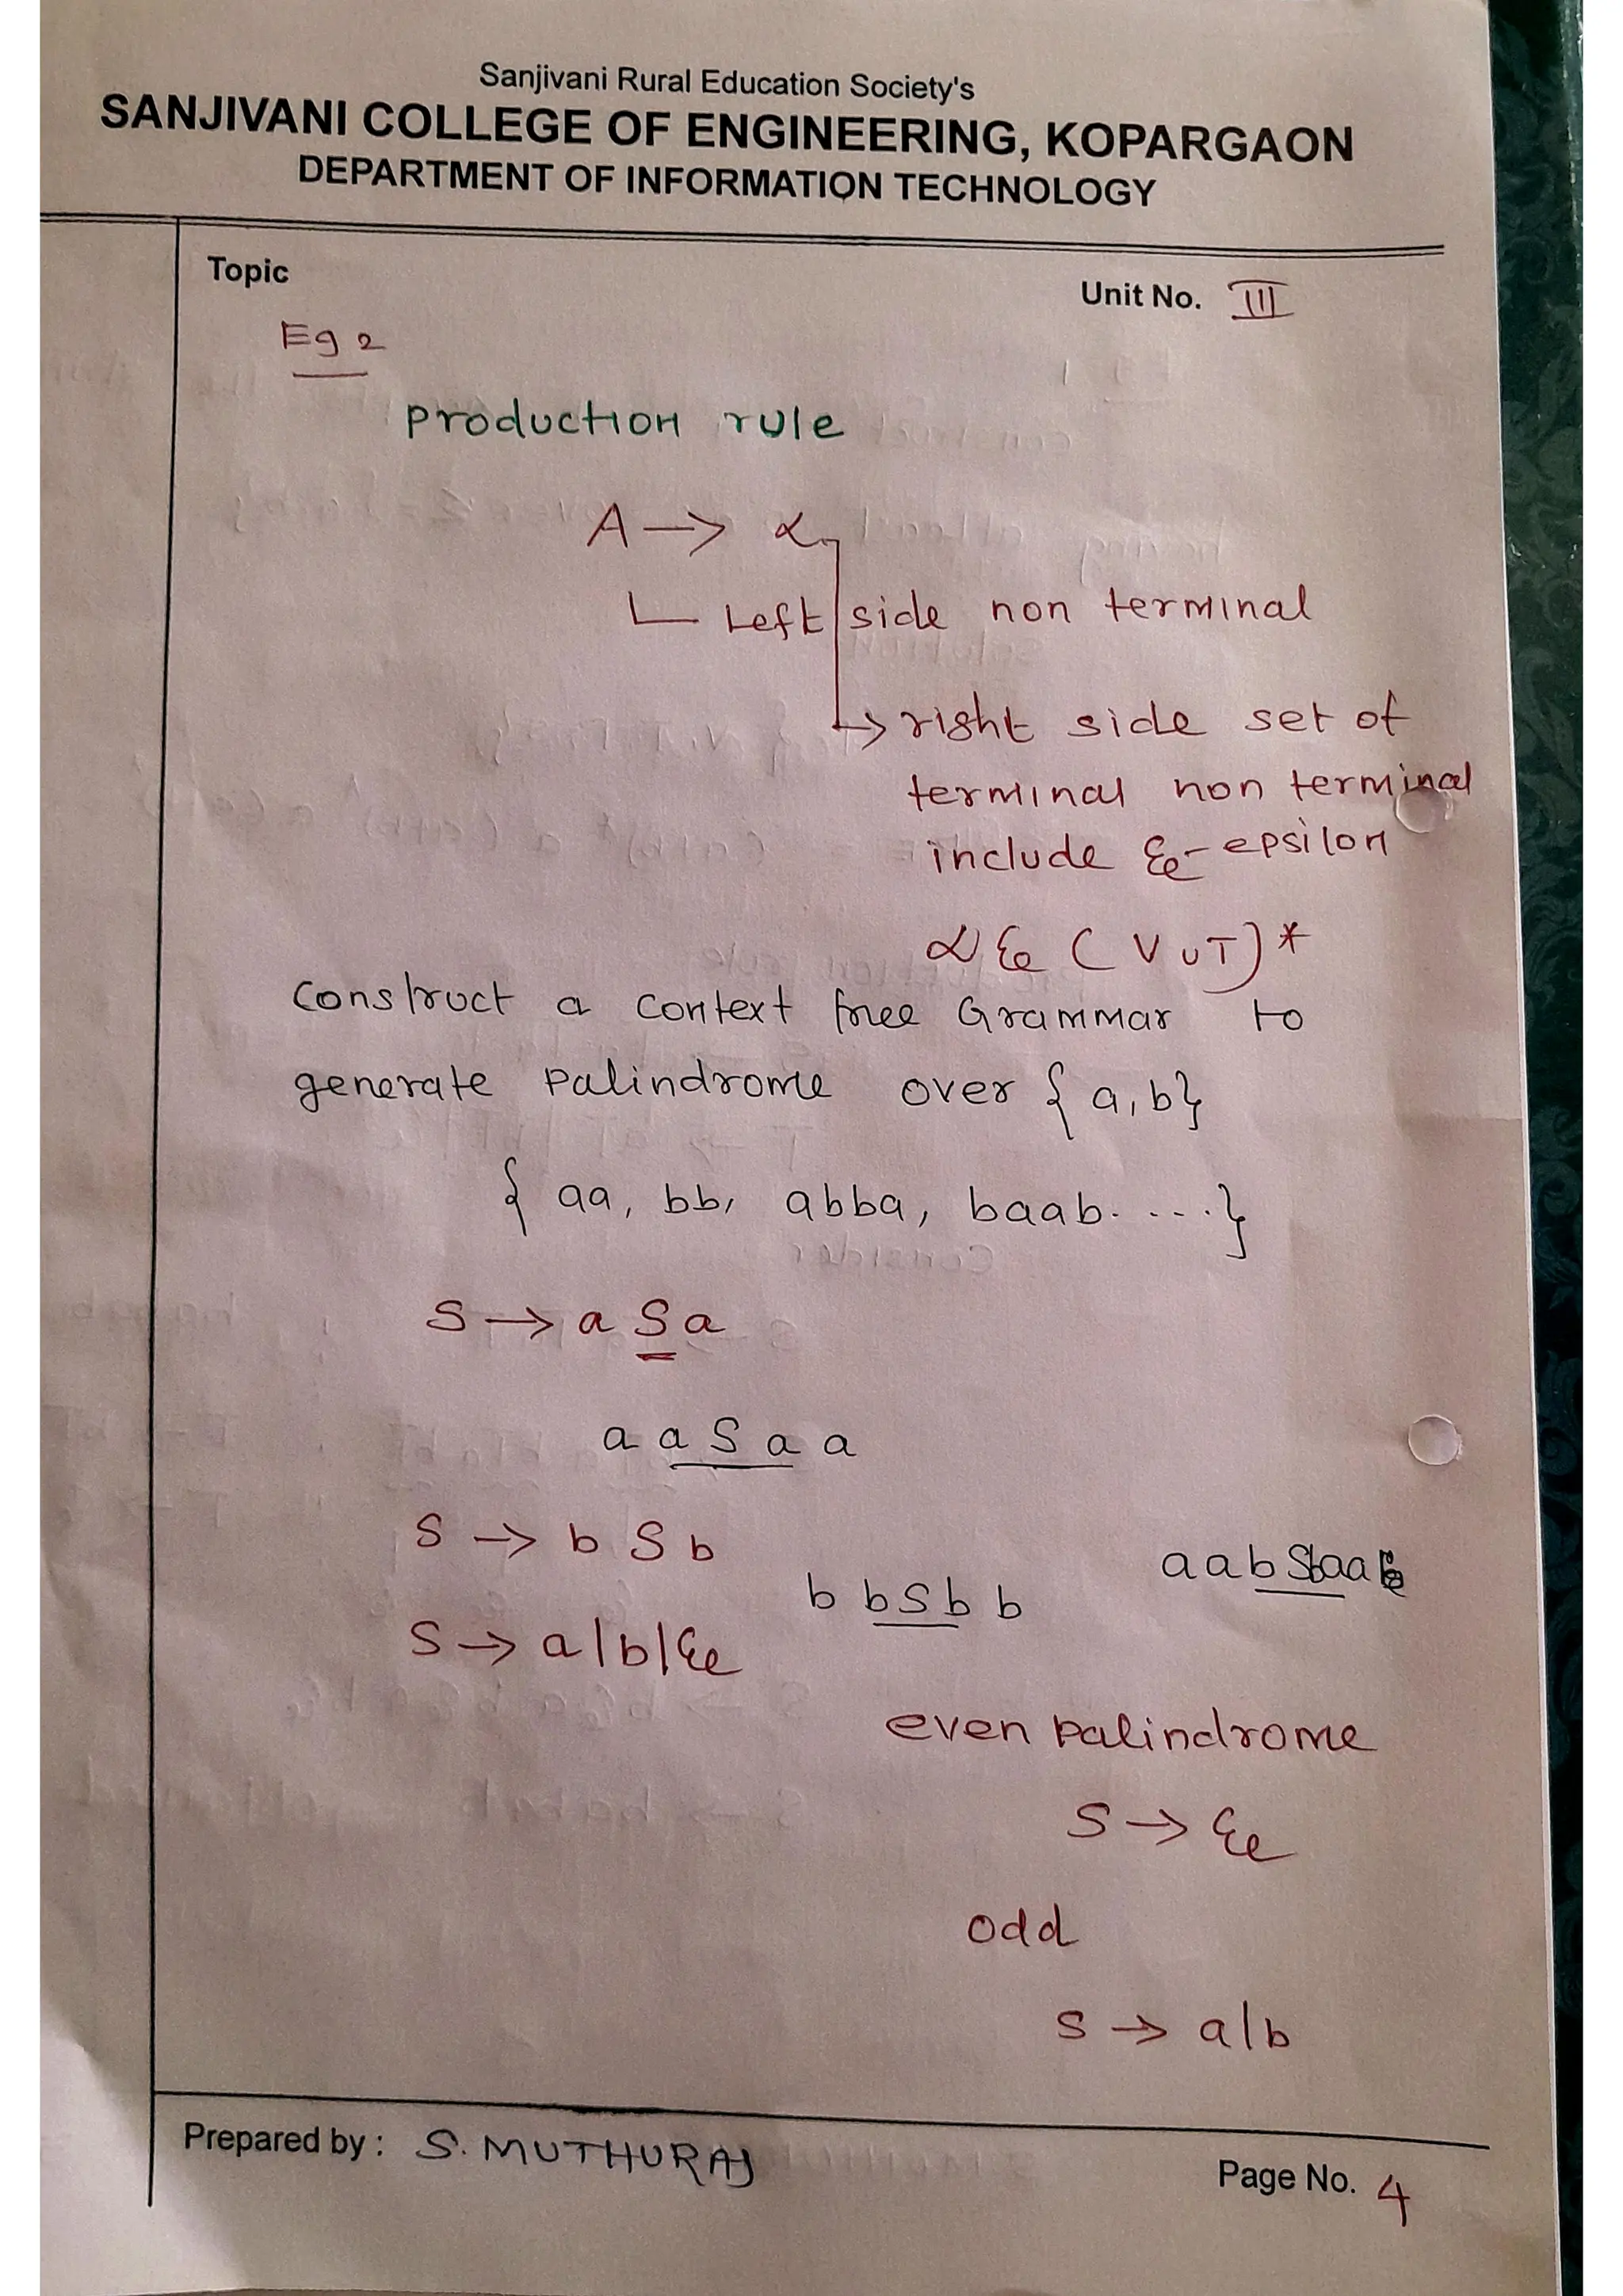 Sanjivani Rural Education Society's
SANJIVANI COLLEGE OF ENGINEERING, KOPARGAON
DEPARTMENT OF INFORMATION TECHNOLOGY
Topic
Unit No. III
Eg 2
production rule
A → α
Left side non terminal
→ right side set of
terminal non terminal
include ε - epsilon
α ε (V ∪ T)*
Construct a context free Grammar to
generate palindrome over {a,b}
{ aa, bb, abba, baab. ....}
S → a S a
a a S a a
S → b S b
aabSbaa
b b S b b
S → a|b|ε
even palindrome
S → ε
odd
S → a|b
Prepared by : S. MUTHURAJ
Page No. 4